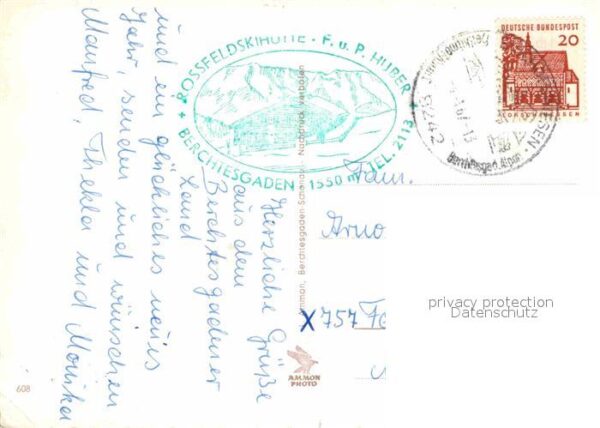 Herzliche Grüße
aus dem
Berchtesgadener
Land
und ein glückliches neues
Jahr, senden und wünschen
Manfred, Thekla und Monika
ROSSFELDSKIHÜTTE - F. u. P. HUBER
BERCHTESGADEN 1550 m TEL. 2113
DEUTSCHE BUNDESPOST
20
Fam.
Arno
X 757
privacy protection
Datenschutz
Berchtesgaden-Schönau - Nachdruck verboten
AMMON
PHOTO
608